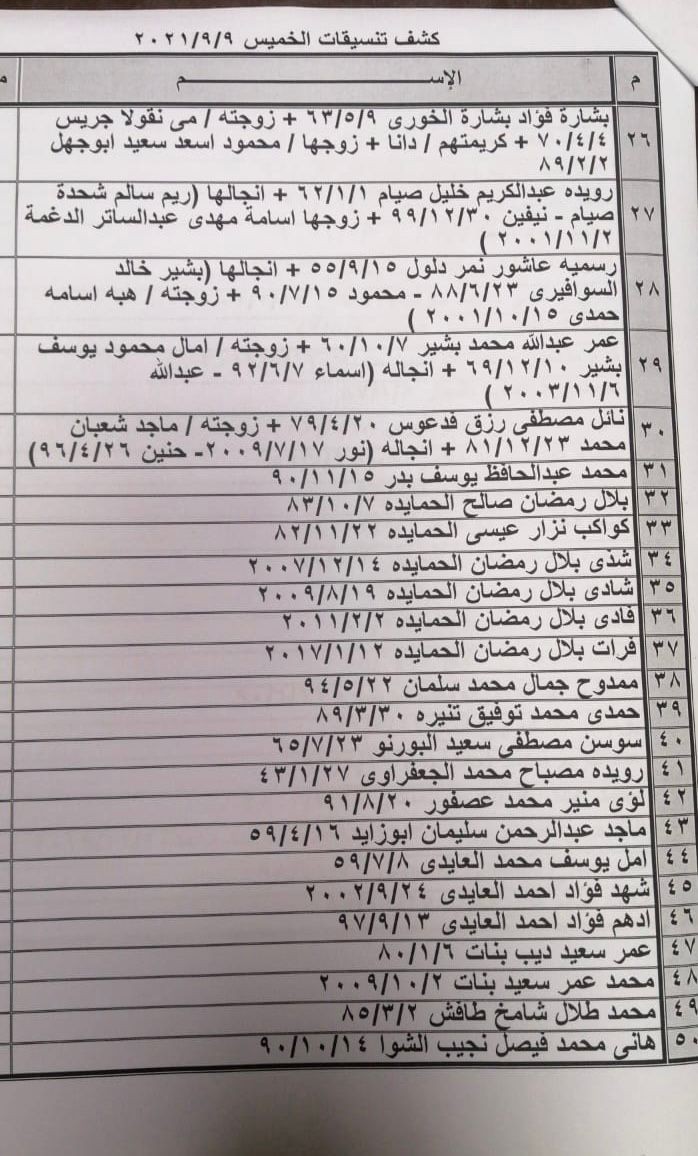 كشف تنسيقات الخميس ٢٠٢١/٩/٩
م الإســـــــــم م
بشارة فؤاد بشارة الخورى ٦٣/٥/٩ + زوجته / مى نقولا جريس
٢٦ ٧٠/٤/٤ + كريمتهم / دانا + زوجها / محمود اسعد سعيد ابوجهل
٨٩/٢/٢
رويده عبدالكريم خليل صيام ٦٢/١/١ + انجالها (ريم سالم شحدة
٢٧ صيام - نيفين ٩٩/١٢/٣٠ + زوجها اسامة مهدى عبدالساتر الدغمة
٢٠٠١/١١/٢ )
رسميه عاشور نمر دلول ٥٥/٩/١٥ + انجالها (بشير خالد
٢٨ السوافيرى ٨٨/٦/٢٣ - محمود ٩٠/٧/١٥ + زوجته / هبه اسامه
حمدى ٢٠٠١/١٠/١٥ )
عمر عبدالله محمد بشير ٦٠/١٠/٧ + زوجته / امال محمود يوسف
٢٩ بشير ٦٩/١٢/١٠ + انجاله (اسماء ٩٢/٦/٧ - عبدالله
٢٠٠٣/١١/٦ )
نائل مصطفى رزق فدعوس ٧٩/٤/٢٠ + زوجته / ماجد شعبان
٣٠ محمد ٨١/١٢/٢٣ + انجاله (نور ٢٠٠٩/٧/١٧- حنين ٩٦/٤/٢٦)
٣١ محمد عبدالحافظ يوسف بدر ٩٠/١١/١٥
٣٢ بلال رمضان صالح الحمايده ٨٣/١٠/٧
٣٣ كواكب نزار عيسى الحمايده ٨٢/١١/٢٢
٣٤ شذى بلال رمضان الحمايده ٢٠٠٧/١٢/١٤
٣٥ شادى بلال رمضان الحمايده ٢٠٠٩/٨/١٩
٣٦ فادى بلال رمضان الحمايده ٢٠١١/٢/٢
٣٧ فرات بلال رمضان الحمايده ٢٠١٧/١/١٢
٣٨ ممدوح جمال محمد سلمان ٩٤/٥/٢٢
٣٩ حمدى محمد توفيق تنيره ٨٩/٣/٣٠
٤٠ سوسن مصطفى سعيد البورنو ٦٥/٧/٢٣
٤١ رويده مصباح محمد الجعفراوى ٤٣/١/٢٧
٤٢ لؤى منير محمد عصفور ٩١/٨/٢٠
٤٣ ماجد عبدالرحمن سليمان ابوزايد ٥٩/٤/١٦
٤٤ امل يوسف محمد العايدى ٥٩/٧/٨
٤٥ شهد فؤاد احمد العايدى ٢٠٠٢/٩/٢٤
٤٦ ادهم فؤاد احمد العايدى ٩٧/٩/١٣
٤٧ عمر سعيد ديب بنات ٨٠/١/٦
٤٨ محمد عمر سعيد بنات ٢٠٠٩/١٠/٢
٤٩ محمد طلال شامخ طافش ٨٥/٣/٢
٥٠ هانى محمد فيصل نجيب الشوا ٩٠/١٠/١٤